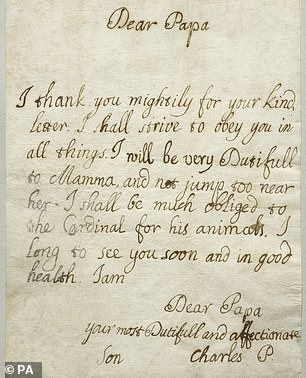 Dear Papa
I thank you mightily for your kind
letter. I shall strive to obey you in
all things. I will be very Dutifull
to Mamma, and not jump too near
her. I shall be much obliged to
the Cardinal for his animals. I
long to see you soon and in good
health. I am
Dear Papa
your most Dutifull and affectionate
Son Charles P.
© PA